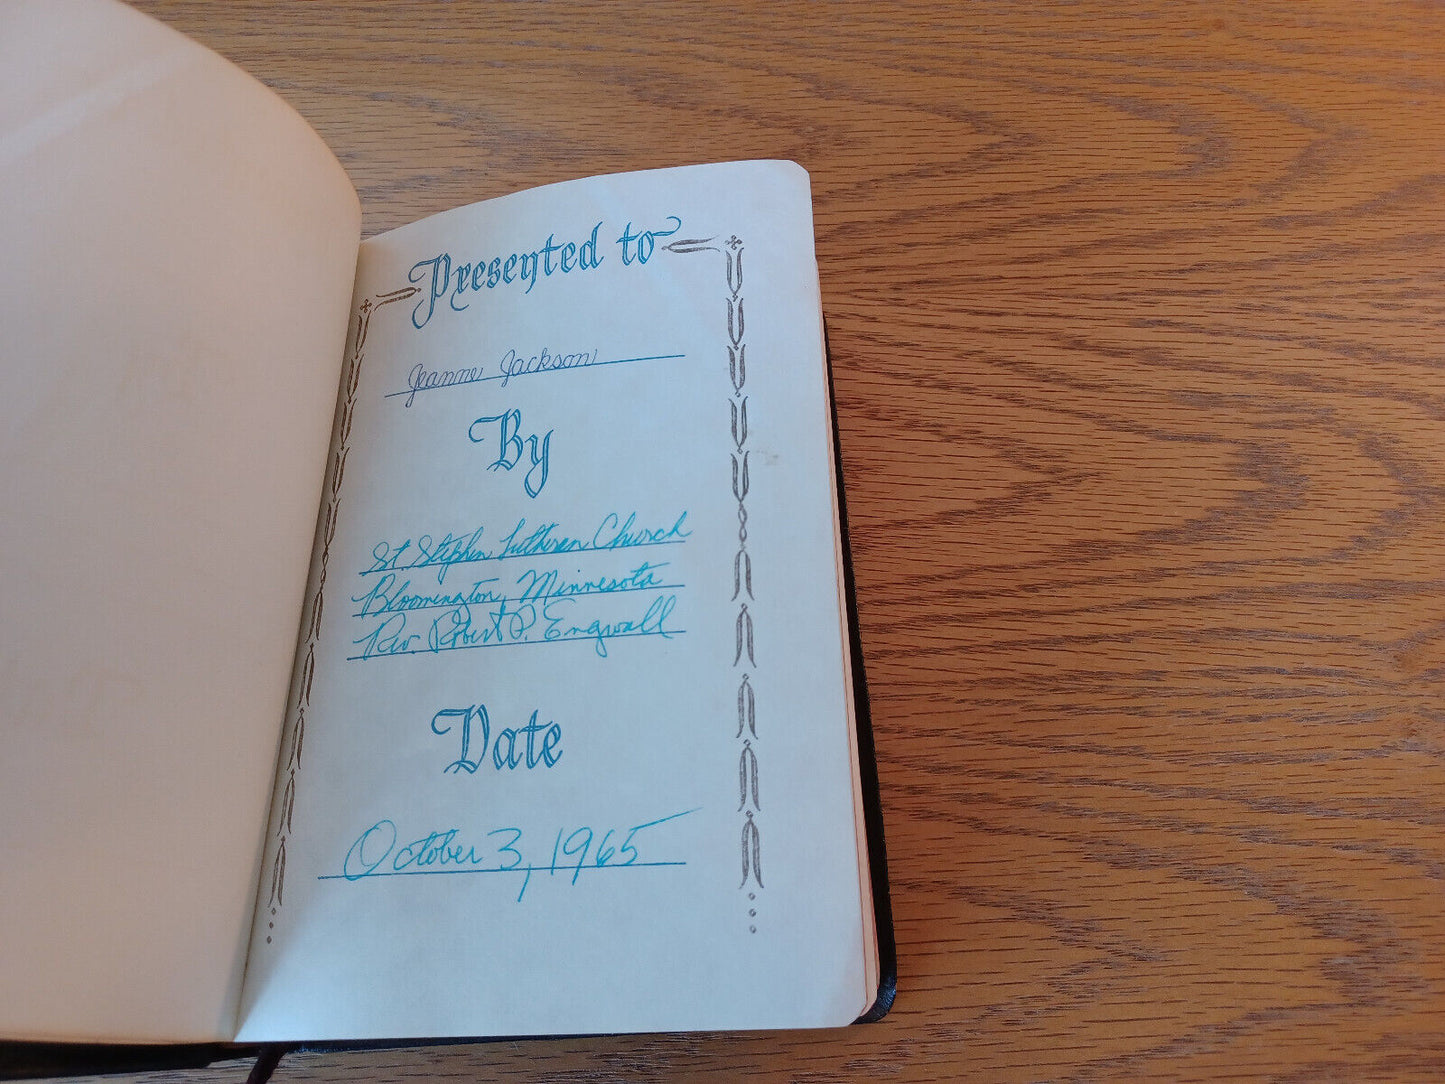 Presented to
Jeanne Jackson
By
St. Stephen Lutheran Church
Bloomington, Minnesota
Rev. Robert P. Engwall
Date
October 3, 1965